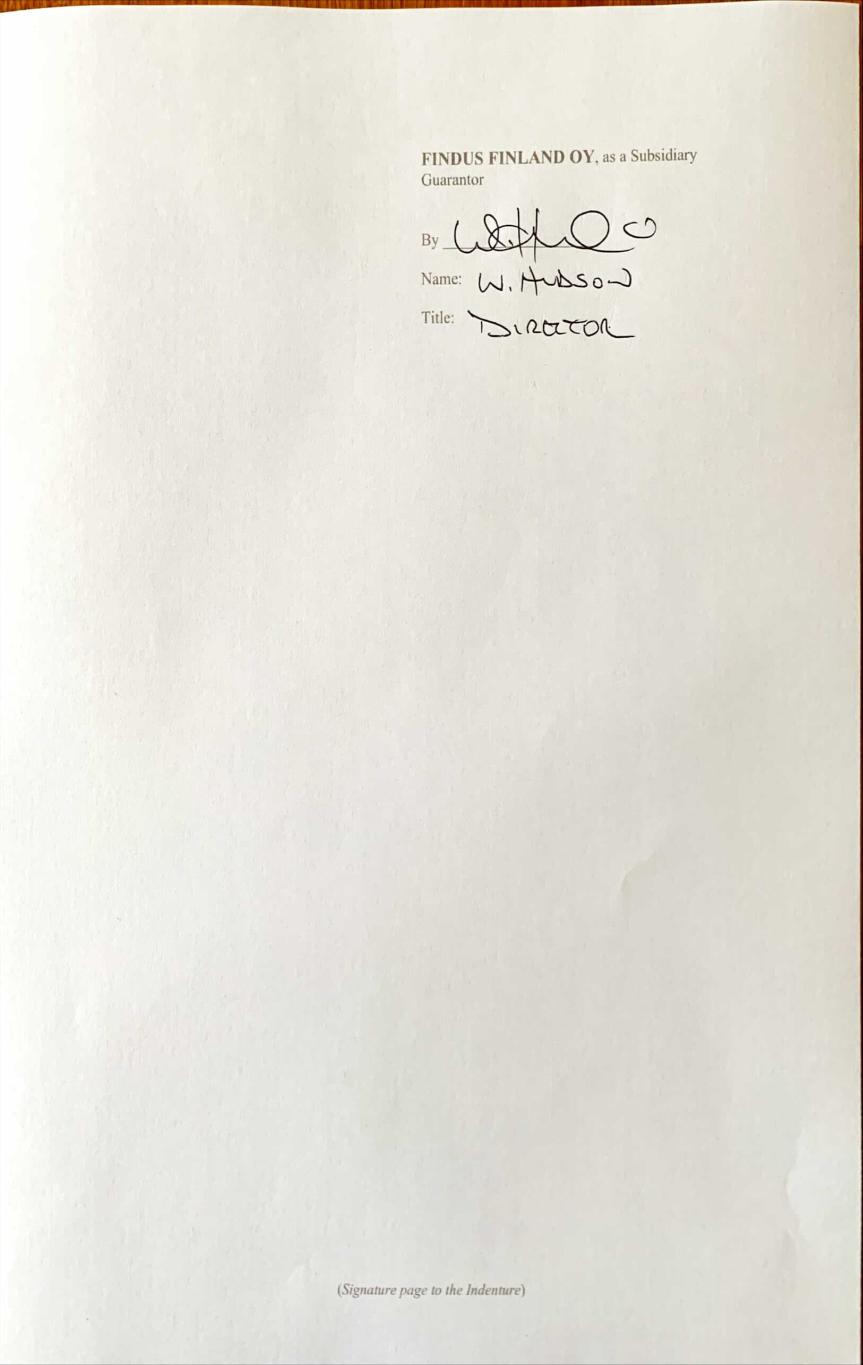 FINDUS FINLAND OY, as a Subsidiary
Guarantor
By
Name: W. HUDSON
Title: DIRECTOR
(Signature page to the Indenture)